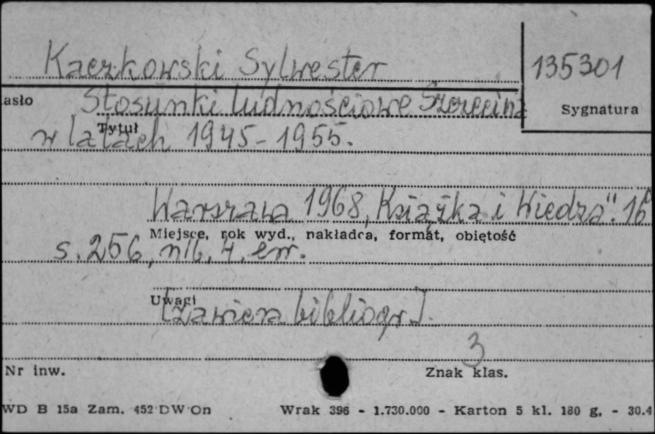 Kaczkowski Sylwester
135301
asło
Stosunki ludnościowe Szczecina
Sygnatura
Tytuł
w latach 1945-1955.
Warszawa 1968, "Książka i Wiedza". 16°
Miejsce, rok wyd., nakładca, format, objętość
s. 256, nlb. 4, err.
Uwagi
[zawiera bibliogr].
3
Nr inw.
Znak klas.
WD B 15a Zam. 452 DW On Wrak 396 - 1.730.000 - Karton 5 kl. 180 g. - 30.4